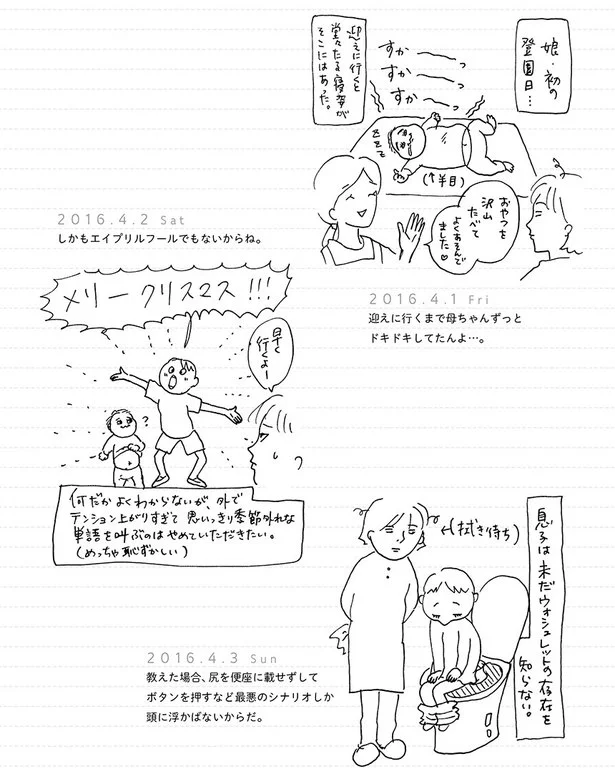 娘・初の
登園日…
すかーっ
すかーっ
すかーっ
迎えに行くと
堂々たる寝姿が
そこにはあった。
(↑半目)
おやつを
沢山
たべて
よくあそんで
ました♡
2016.4.1 Fri
迎えに行くまで母ちゃんずっと
ドキドキしてたんよ…。
2016.4.2 Sat
しかもエイプリルフールでもないからね。
メリークリスマス!!!
早く
行くよー
?
何だかよくわからないが、外で
テンション上がりすぎて思いっきり季節外れな
単語を叫ぶのはやめていただきたい。
(めっちゃ恥ずかしい)
息子は未だウォシュレットの存在を
知らない。
←(拭き待ち)
2016.4.3 Sun
教えた場合、尻を便座に載せずして
ボタンを押すなど最悪のシナリオしか
頭に浮かばないからだ。